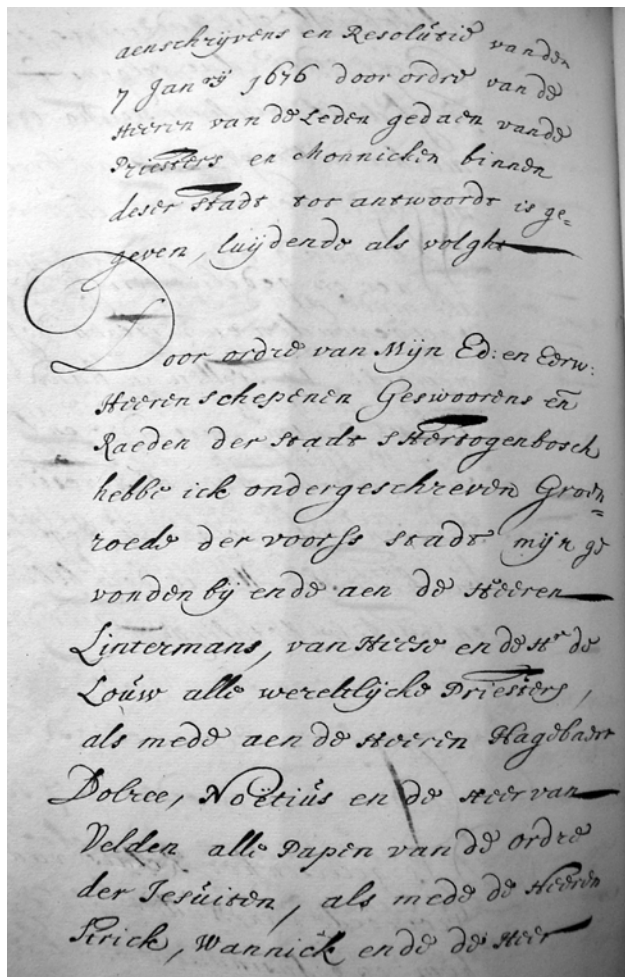 aenschrijvens en Resolutie vanden
7 Janry 1676 door ordre van de
Heeren van de Leden gedaen vande
Priesters en Monnicken binnen
deser stadt tot antwoordt is ge=
geven, luijdende als volght
Door ordre van Mijn Ed: en Eerw:
Heeren schepenen Geswoorens en̄
Raeden der stadt sHertogenbosch
hebbe ick ondergeschreven Groen=
roede der voorss stadt mijn ge
vonden bij ende aen de Heeren
Lintermans, van Heese en de Hr de
Louw alle wereltlijcke Priesters,
als mede aen de Heeren Hagebaert
Dolree, Noëtius en de Heer van
Velden alle Papen van de ordre
der Jesuiten, als mede de Heeren
Sirick, Wannick ende de Heer